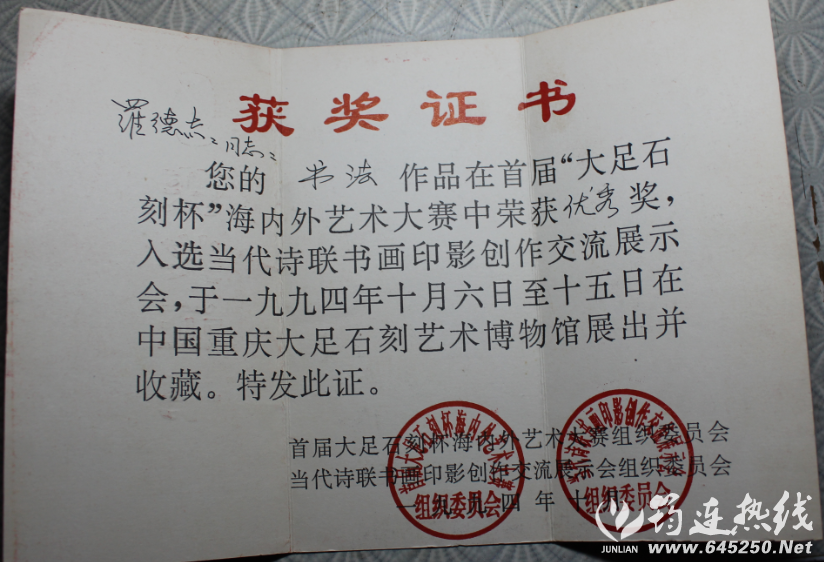 获奖证书
罗德志：同志：
您的 书法 作品在首届“大足石
刻杯”海内外艺术大赛中荣获优秀奖，
入选当代诗联书画印影创作交流展示
会，于一九九四年十月六日至十五日在
中国重庆大足石刻艺术博物馆展出并
收藏。特发此证。
首届大足石刻杯海内外艺术大赛组织委员会
当代诗联书画印影创作交流展示会组织委员会
一九九四年十月
组织委员会
组织委员会
筠连热线
JUNLIAN www.645250.Net